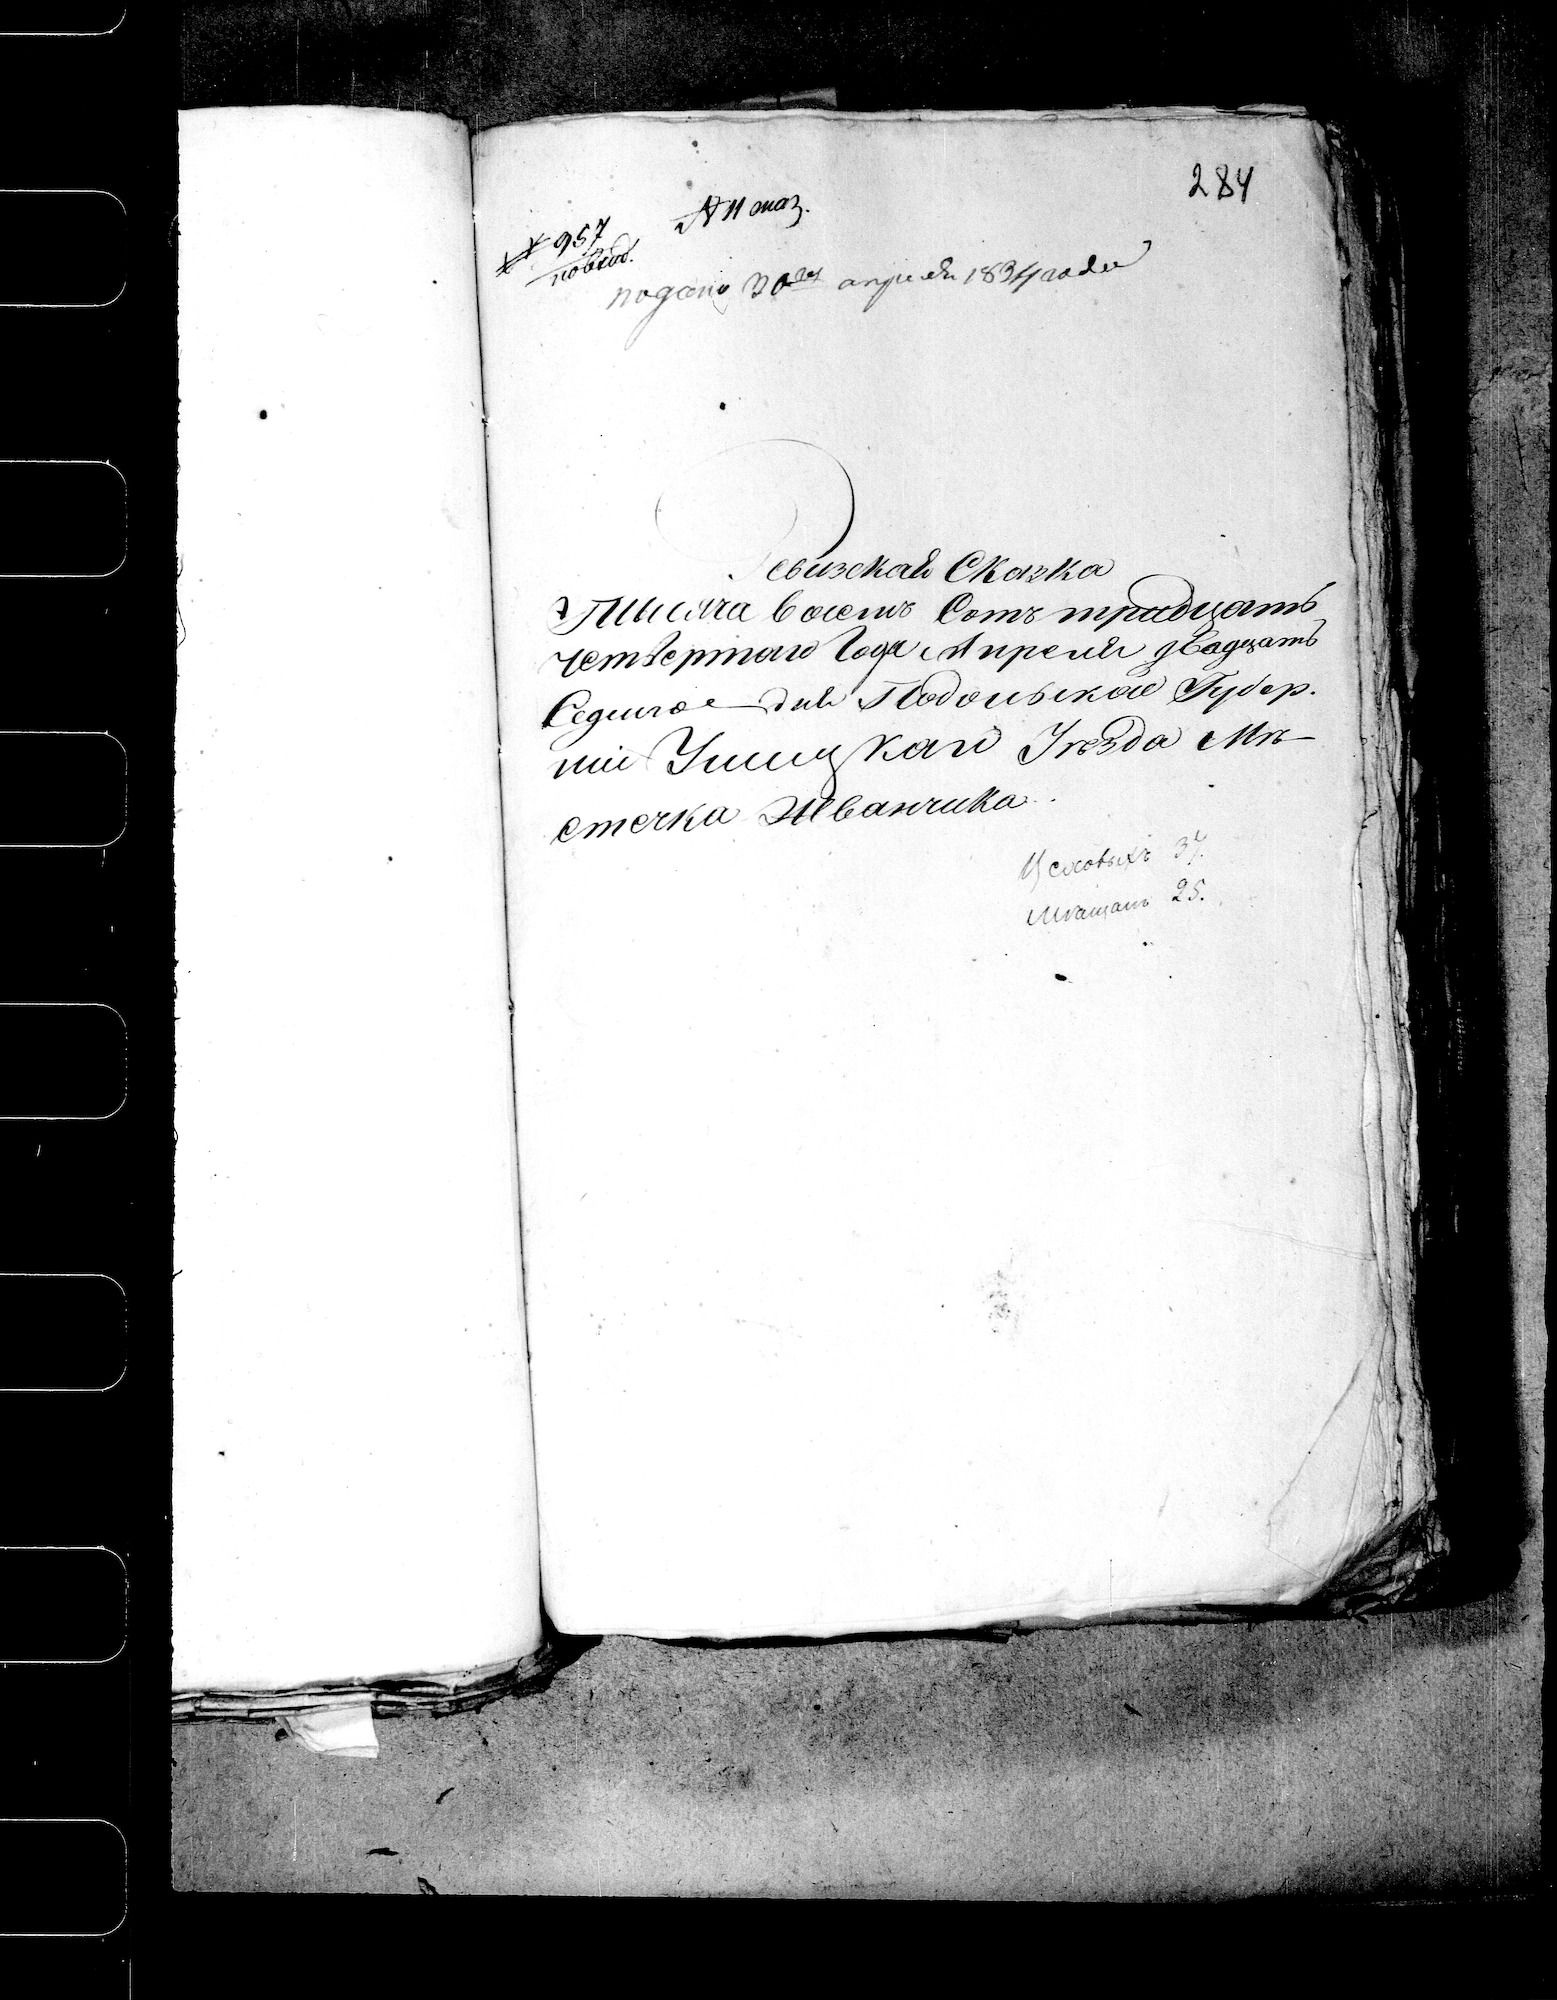 284
№ 957
№ 11
подано 30го апреля 1834 года
Ревизская Сказка
Тысяча восемь Сотъ тридцать
четвертаго Года Апреля двадцать
Седмаго дня Подольской Губер.
ніи Ушицкаго Уезда Мѣ-
стечка Жванчика
Цеховыхъ 37.
Мѣщанъ 25.